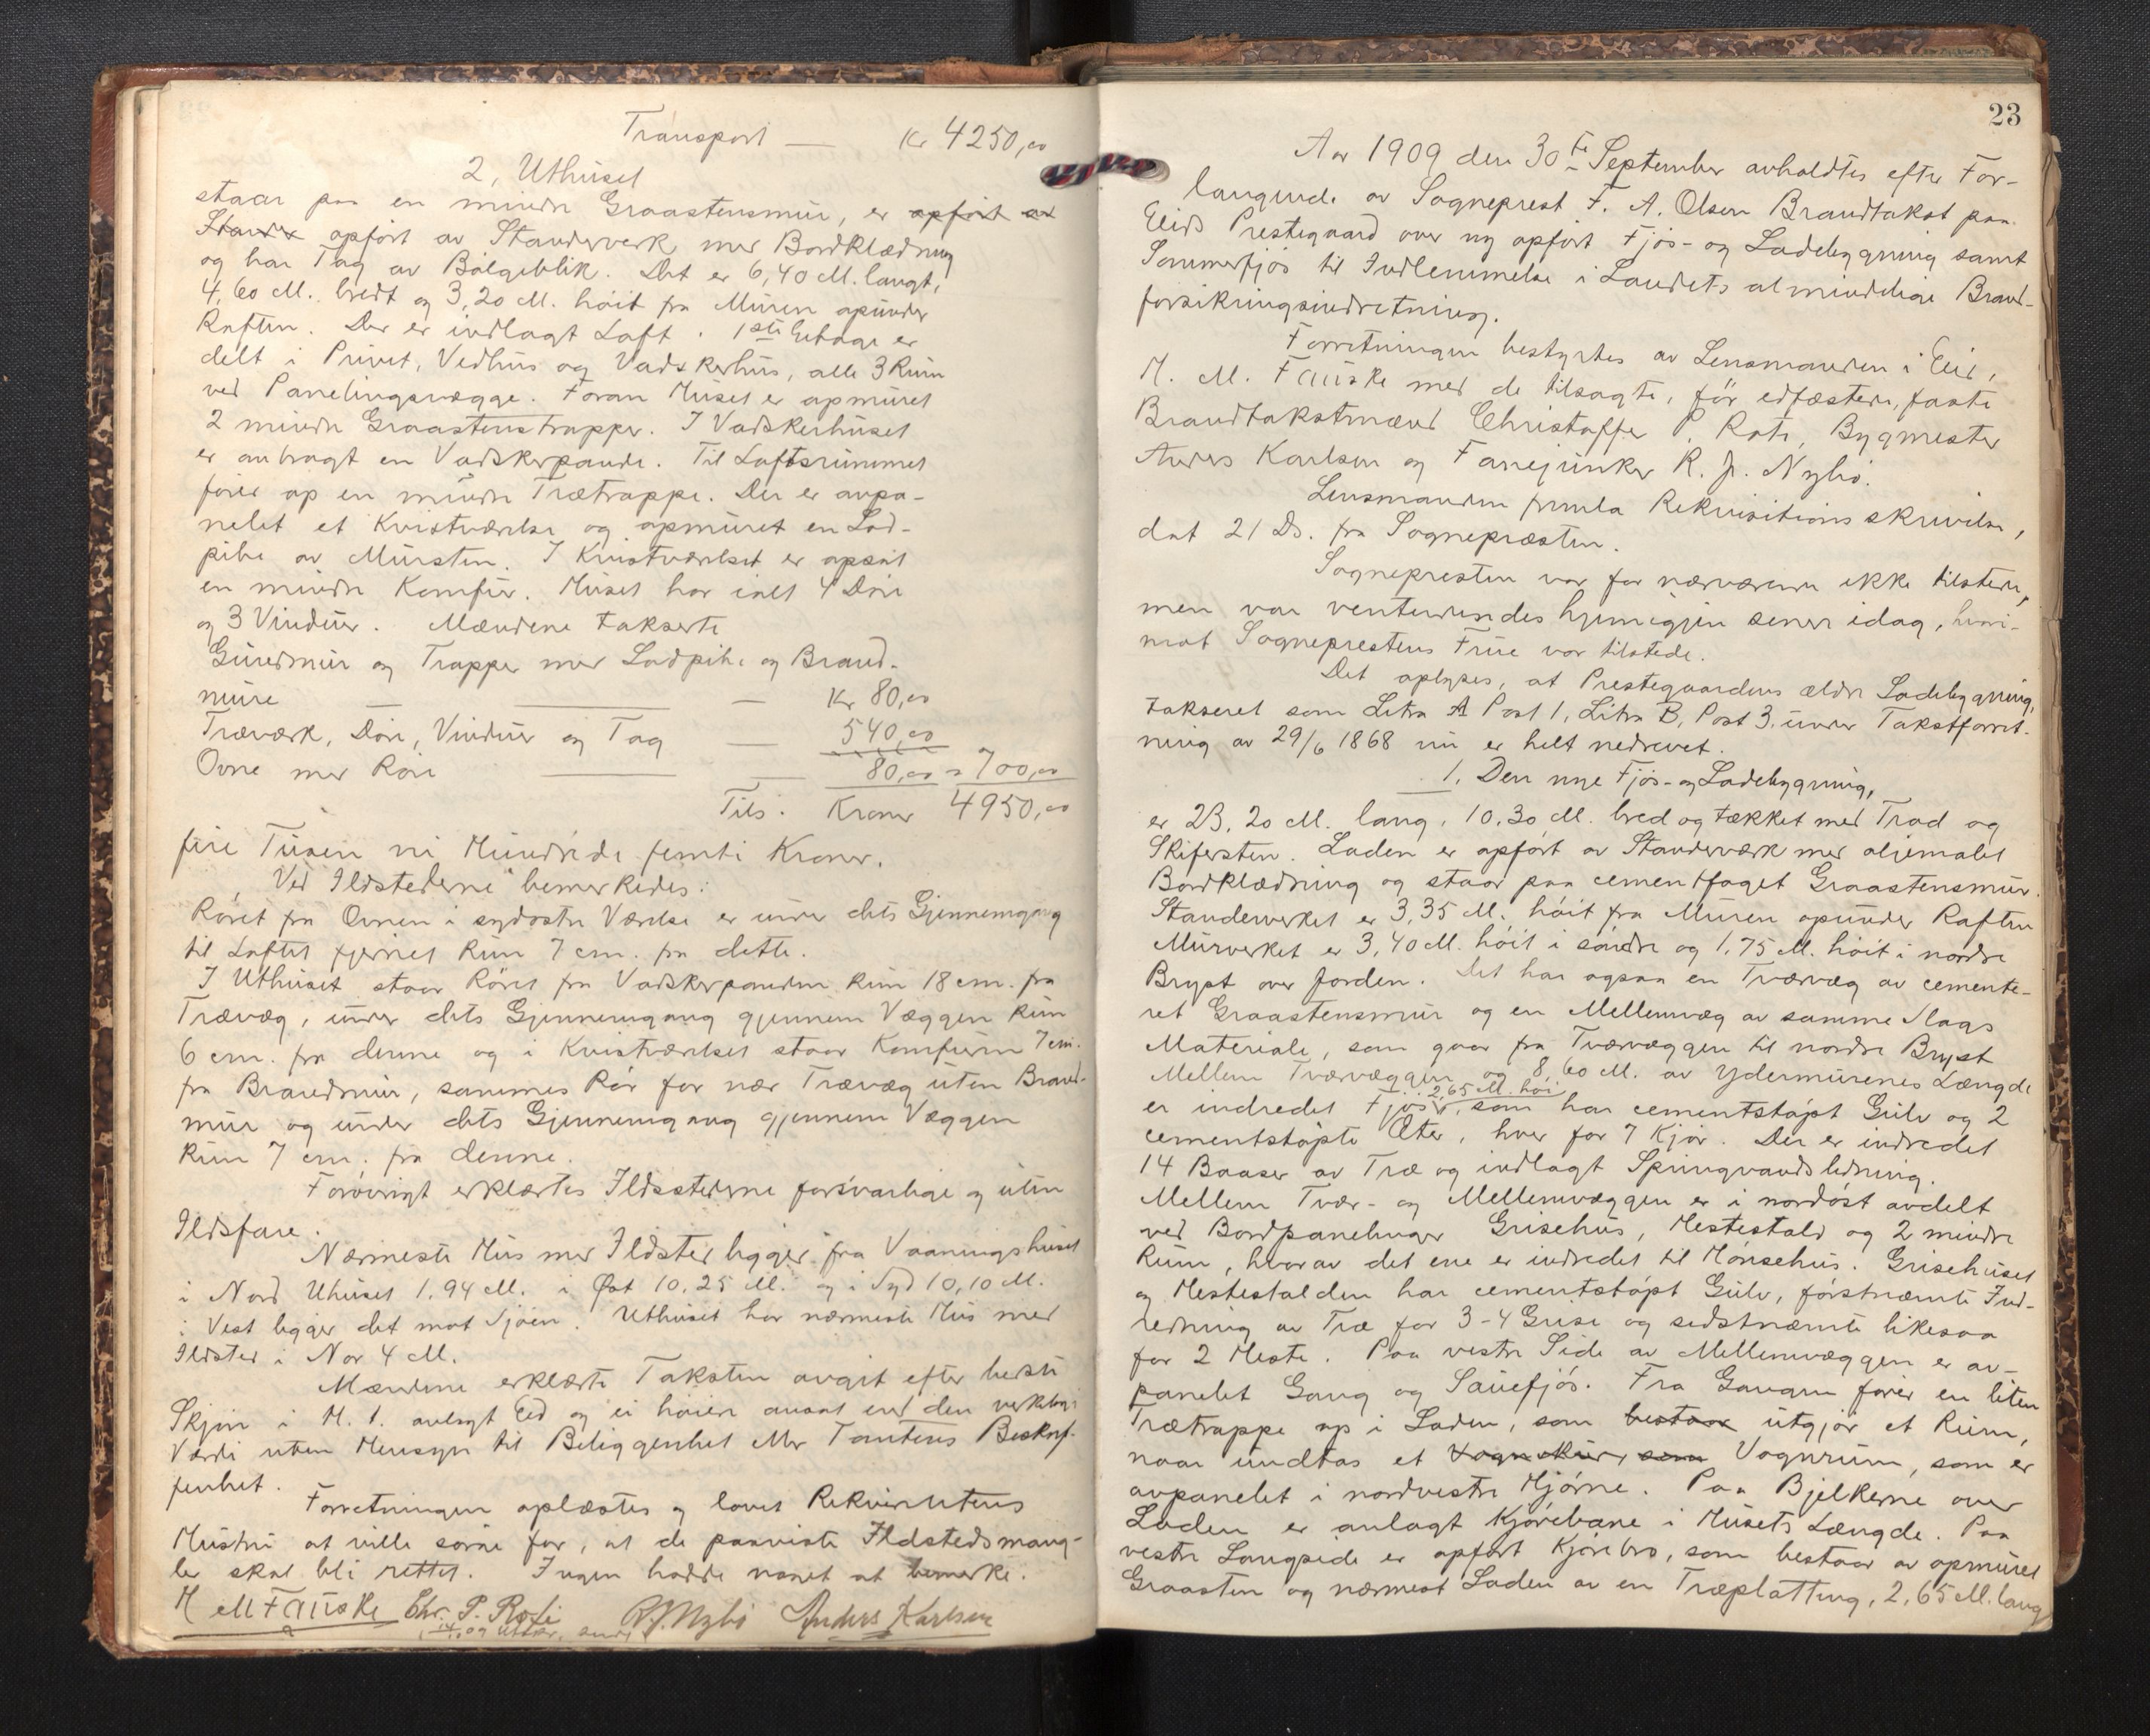 Transport — Kr 4250,00
2, Uthuset
staar paa en mindre Graastensmur, er opført av
Stander opført av Standerverk med Bordklædning
og har Tag av Bølgeblik. Det er 6,40 M. langt,
4,60 M. bredt og 3,20 M. höit fra Muren opunder
Raften. Der er indlagt Loft. 1ste Etage er
delt i Privet, Vedhus og Vadskerhus, alle 3 Rum
ved Panelingsvægge. Foran Huset er opmuret
2 mindre Graastenstrapper. I Vadskerhuset
er anbragt en Vadskerpande. Til Loftsrummet
fører op en mindre Trætrappe. Der er avpa-
nelet et Kvistværelse og opmuret en Lod-
pibe av Mursten. I Kvistværelset er opsat
en mindre Komfur. Huset har ialt 4 Döre
og 3 Vinduer. Mændene takserte
Gruedmur og Trapper med Lodpibe og Brand-
mure — Kr 80,00
Træværk, Döre, Vinduer og Tag — 540,00
Ovne med Rör — 80,00 = 700,00
Tils. Kroner 4950,00
fire Tusen ni Hundrede femti Kroner.
Ved Ildstederne bemerkedes:
Röret fra Ovnen i sydostre Værelse er under dets Gjennemgang
til Loftet fjernet kun 7 cm. fra dette.
I Uthuset staar Röret fra Vadskerpanden kun 18 cm. fra
Trævæg, under dets Gjennemgang gjennem Væggen kun
6 cm. fra denne og i Kvistværelset staar Komfuren 7 cm.
fra Brandmur, sammes Rör for nær Trævæg uten Brand-
mur og under dets Gjennemgang gjennem Væggen
kun 7 cm. fra denne.
Forövrigt erklærtes Ildstederne forsvarlige og uten
Ildsfare.
Nærmeste Hus med Ildsted ligger fra Vaaningshuset
i Nord Uhuset 1,94 M. i Öst 10,25 M. og i Syd 10,10 M.
i Vest ligger det mot Sjöen. Uthuset har nærmeste Hus med
Ildsted i Nor 4 M.
Mændene erklærte Taksten avgit efter bedste
Skjön i H. t. avlagt Ed og ei höiere ansat end den verkelige
Værdi uten Hensyn til Beliggenhet eller Tomtens Beskaf-
fenhet.
Forretningen oplæstes og lovet Rekvirentens
Hustru at ville sörge for, at de paaviste Ildstedsmang-
ler skal bli rettet. Ingen hadde noget at bemerke.
H M Fauske Chr. P. Roti R. J. Nybö Anders Karlsen
23
Aar 1909 den 30te September avholdtes efter For-
langende av Sogneprest F. A. Olsen Brandtakst paa
Eids Prestegaard over ny opført Fjös- og Ladebygning samt
Sommerfjös til Indlemmelse i Landets almindelige Brand-
forsikringsindretning.
Forretningen bestyrtes av Lensmanden i Eid,
H. M. Fauske med de tilsagte, för edfæstede, faste
Brandtakstmænd Christoffer P. Roti, Bygmester
Anders Karlsen og Fanejunker R. J. Nybö.
Lensmanden fremla Rekvisitions skrivelse,
dat 21 Ds. fra Sognepræsten.
Sognepresten var for nærværende ikke tilstede,
men var ventendes hjemigjen senere idag, hvori-
mot Sogneprestens Frue var tilstede.
Det oplyses, at Prestegaardens ældre Ladebygning,
takseret som Litra A Post 1, Litra B, Post 3. under Takstforret-
ning av 29/6 1868 nu er helt nedrevet.
1. Den nye Fjös- og Ladebygning,
er 23,20 M. lang, 10,30 M. bred og tækket med Trod og
Skifersten. Laden er opført av Standerværk med oljemalet
Bordklædning og staar paa cementfuget Graastensmur.
Standerverket er 3,35 M. höit fra Muren opunder Raften
Murverket er 3,40 M. höit i söndre og 1,75 M. höit i nordre
Bryst over Jorden. Det har ogsaa en Tværvæg av cemente-
ret Graastensmur og en Mellemvæg av samme Slags
Materiale, som gaar fra Tværvæggen til nordre Bryst
Mellem Tværvæggen og 8,60 M. av Ydermurenes Længde
er indredet Fjös, 2,65 M. höi, som har cementstöpt Gulv og 2
cementstöpte Æter, hver for 7 Kjör. Der er indredet
14 Baaser av Træ og indlagt Springvandsledning.
Mellem Tvær- og Mellemvæggen er i nordöst avdelt
ved Bordpanelinger Grisehus, Hestestald og 2 mindre
Rum, hvorav det ene er indredet til Hönsehus. Grisehuset
og Hestestalden har cementstöpt Gulv, förstnæmte Ind-
redning av Træ for 3-4 Grise og sidstnæmte likesaa
for 2 Heste. Paa vestre Side av Mellemvæggen er av-
panelet Gang og Sauefjös. Fra Gangen förer en liten
Trætrappe op i Laden, som bestaar utgjör et Rum,
naar undtas et Vognskur, som Vognrum, som er
avpanelet i nordvestre Hjörne. Paa Bjelkerne over
Laden er anlagt Kjörebane i Husets Længde. Paa
vestre Langside er opfört Kjörebro, som bestaar av opmuret
Graasten og nærmest Laden av en Træplatting, 2,65 M. lang